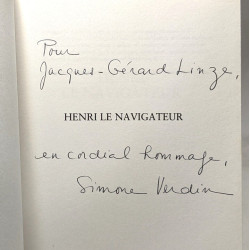 Pour
Jacques-Gérard Linze,
HENRI LE NAVIGATEUR
en cordial hommage,
Simone Verdin